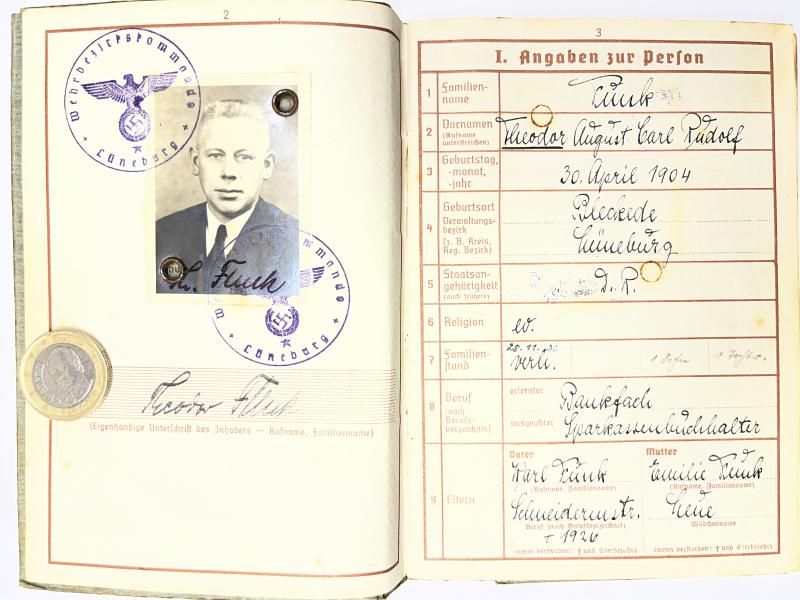 2
Wehrbezirkskommando
Lüneburg
Th. Funk
Wehrbezirkskommando
Lüneburg
Theodor Funk
(Eigenhändige Unterschrift des Inhabers — Rufname, Familienname)
3
I. Angaben zur Person
1 Familien-
name
Funk
2 Vornamen
(Rufname
unterstreichen)
Theodor August Carl Rudolf
3 Geburtstag,
-monat,
-jahr
30. April 1904
4 Geburtsort
Verwaltungs-
bezirk
(z. B. Kreis,
Reg. Bezirk)
Bleckede
Lüneburg
5 Staatsan-
gehörigkeit
(auch frühere)
D. R.
6 Religion
ev.
7 Familien-
stand
28.11.30
verh.
1 Sohn 1 Tochter.
8 Beruf
(nach
Berufs-
verzeichnis)
erlernter
Bankfach
ausgeübter
Sparkassenbuchhalter
9 Eltern
Vater
Karl Funk
(Rufname, Familienname)
Schneidermstr.
Beruf (nach Berufsverzeichnis)
† 1926
(wenn verstorben: † und Sterbejahr)
Mutter
Emilie Funk
(Rufname, Familienname)
Mädchenname
(wenn verstorben: † und Sterbejahr)